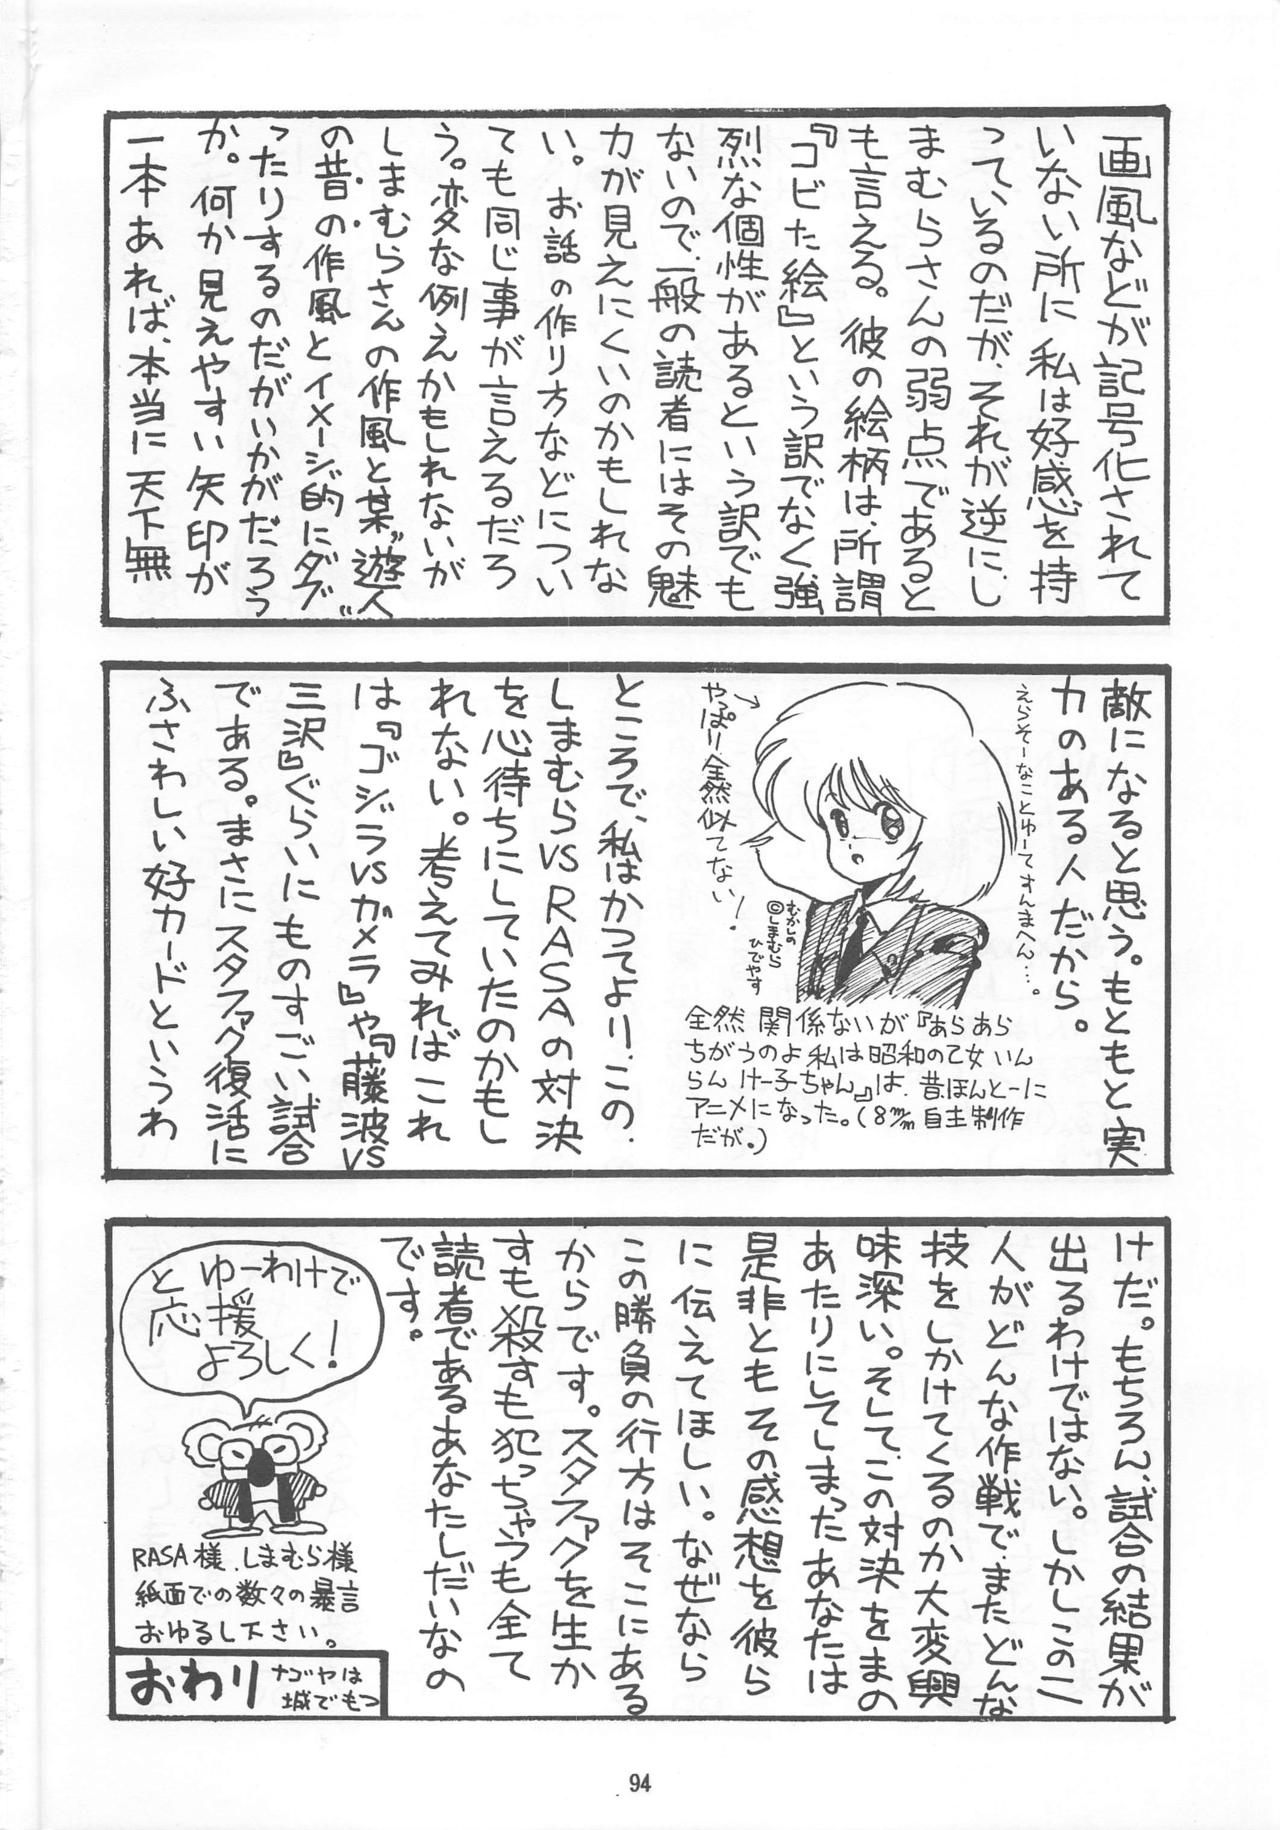 画風などが記号化されて
いない所に私は好感を持
っているのだが、それが逆にし
まむらさんの弱点であると
も言える。彼の絵柄は、所謂
『コビた絵』という訳でなく強
烈な個性があるという訳でも
ないので、一般の読者にはその魅
力が見えにくいのかもしれな
い。お話の作り方などについ
ても同じ事が言えるだろ
う。変な例えかもしれないが
しまむらさんの作風と某〝遊人
の昔の作風とイメージ的にダブ〟
ったりするのだがいかがだろう
か。何か見えやすい矢印が
一本あれば、本当に天下無
敵になると思う。もともと実
力のある人だから。
えらそーなことゆーてすんまへん…。
やっぱり全然似てない!
むかしの
©しまむら
ひでやす
全然関係ないが『あらあら
ちがうのよ私は昭和の乙女いん
らんけー子ちゃん』は、昔ほんとーに
アニメになった。(8m/m自主制作
だが。)
ところで、私はかつてより、この
しまむらVSRASAの対決
を心待ちにしていたのかもし
れない。考えてみればこれ
は『ゴジラVSガメラ』や『藤波VS
三沢』ぐらいにものすごい試合
である。まさにスタファグ復活に
ふさわしい好カードというわ
けだ。もちろん、試合の結果が
出るわけではない。しかしこの二
人がどんな作戦で、またどんな
技をしかけてくるのか大変興
味深い。そして、この対決をまの
あたりにしてしまったあなたは
是非ともその感想を彼ら
に伝えてほしい。なぜなら
この勝負の行方はそこにある
からです。スタファグを生か
すも殺すも犯っちゃうも全て
読者であるあなたしだいなの
です。
ゆーわけで
と応援
よろしく!
RASA様、しまむら様
紙面での数々の暴言
おゆるし下さい。
おわり
ナゴヤは
城でもつ
94